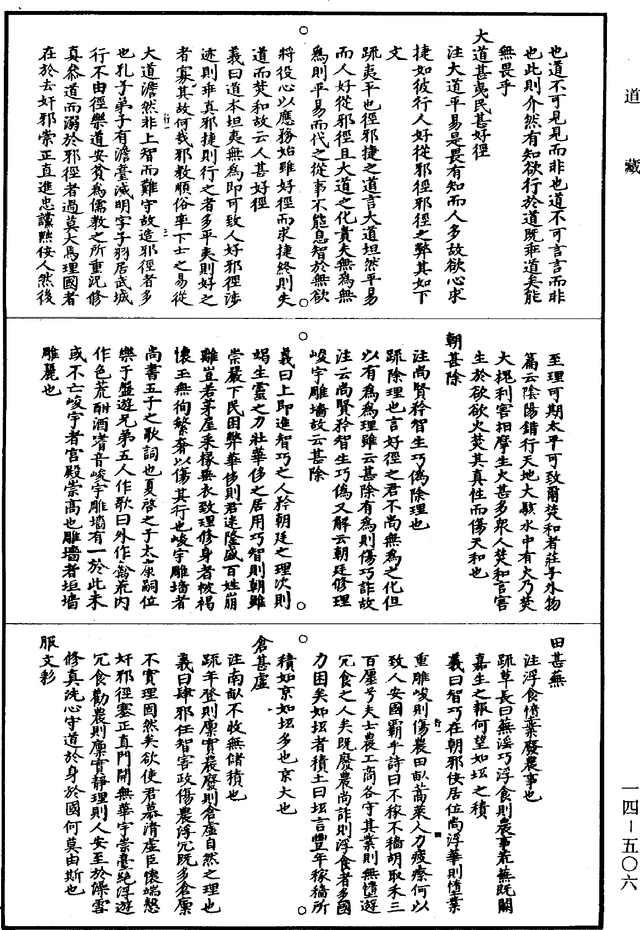 道藏
也道不可見見而非也道不可言言而非
也此則介然有知欲行於道既乖道矣能
無畏乎
大道甚夷民甚好徑
注大道平易是畏有知而人多故欲心求
捷如彼行人好從邪徑邪徑之弊其如下
文
疏夷平也徑邪捷之道言大道坦然平易
而人好從邪徑且大道之化貴夫無為無
為則平易而代之從事不能息智於無欲
將役心以應務姑雖好徑而求捷終則失
道而焚和故云人甚好徑
義曰道本坦夷無為即可致人好邪徑涉
迹則非真邪捷則行之者多平夷則好之
者寡其故何哉邪教順俗率下士之易從
大道澹然非上智而難守故造邪徑者多
也孔子弟子有澹臺滅明字子羽居武城
行不由徑樂道安貧為儒教之所重況修
真忝道而溺於邪徑者過莫大焉理國者
在於去奸邪崇正直進忠讜黜佞人然後
至理可期太平可致爾焚和者莊子外物
篇云陰陽錯行天地大駭水中有火乃焚
大槐利害相摩生火甚多眾人焚和言害
生於欲欲火焚其真性而傷天和也
朝甚除
注尚賢矜智生巧偽除理也
疏除理也言好徑之君不尚無為之化但
以有為為理雖云甚除有為則傷巧詐故
注云尚賢矜智生巧偽又解云朝廷修理
峻宇雕墻故云甚除
義曰上即進智巧之人矜朝廷之理次則
竭生靈之力壯華侈之居用巧智則朝雖
崇嚴下民困弊華侈則君迷隆盛百姓崩
離豈若茅屋采椽垂衣致理修身者被褐
懷玉無徇繁奢以傷其行也峻宇雕墻者
尚書五子之歌詞也夏啓之子太康嗣位
樂于盤遊兄弟五人作歌曰外作禽荒內
作色荒酣酒嗜音峻宇雕墻有一於此未
或不亡峻宇者宮殿崇高也雕墻者垣墻
雕麗也
田甚蕪
注浮食惰業廢農事也
疏草長曰蕪滛巧浮食則農事荒蕪既闕
嘉生之報何望如坻之積
義曰智巧在朝邪佞居位尚浮華則惰業
重雕峻則傷農田畝蒿萊人力疲瘵何以
致人安國霸乎詩曰不稼不穡胡取禾三
百廛兮夫士農工商各守其業則無惰遊
冗食之人矣既廢農尚詐則浮食者多國
力困矣如坻者積土曰坻言豐年稼穡所
積如京如坻多也京大也
倉甚虛
注南畝不收無儲積也
疏年登則廩實農廢則倉虛自然之理也
義曰肆邪任智害政傷農浮冗既多倉廩
不實理固然矣欲使君慕清虛臣懷端慤
奸邪徑塞正直門開無華宇崇臺絕浮遊
冗食勸農則廩實靜理則人安至於澡雪
修真洗心守道於身於國何莫由斯也
服文彩
一四-五〇六